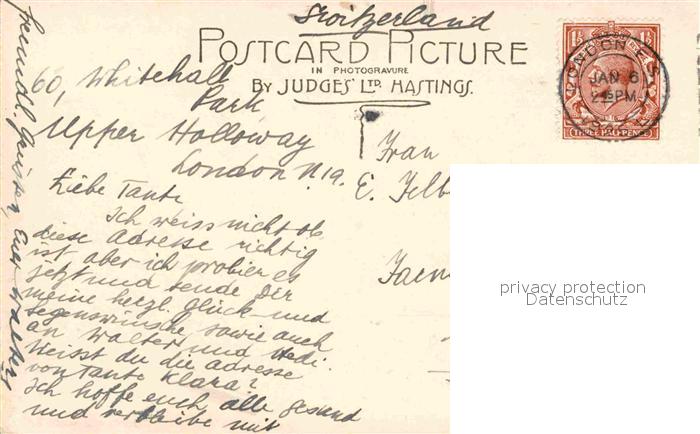 Switzerland
POSTCARD PICTURE
IN PHOTOGRAVURE
BY JUDGES' LTD. HASTINGS.
1½ 1½
THREE HALFPENCE
LONDON
JAN 6
PM
60, Whitehall
Park
Upper Holloway
London N 19.
Liebe Tante
Ich weiss nicht ob
diese Adresse richtig
ist aber ich probier es
jetzt und sende Dir
meine herzl. Glück- und
Segenswünsche, sowie auch
an Walter und Hedi.
Weisst du die adresse
von Tante Klara?
Ich hoffe euch alle gesund
und verbleibe mit
freundl. Grüssen, Euer Walter
Frau
E.
privacy protection
Datenschutz